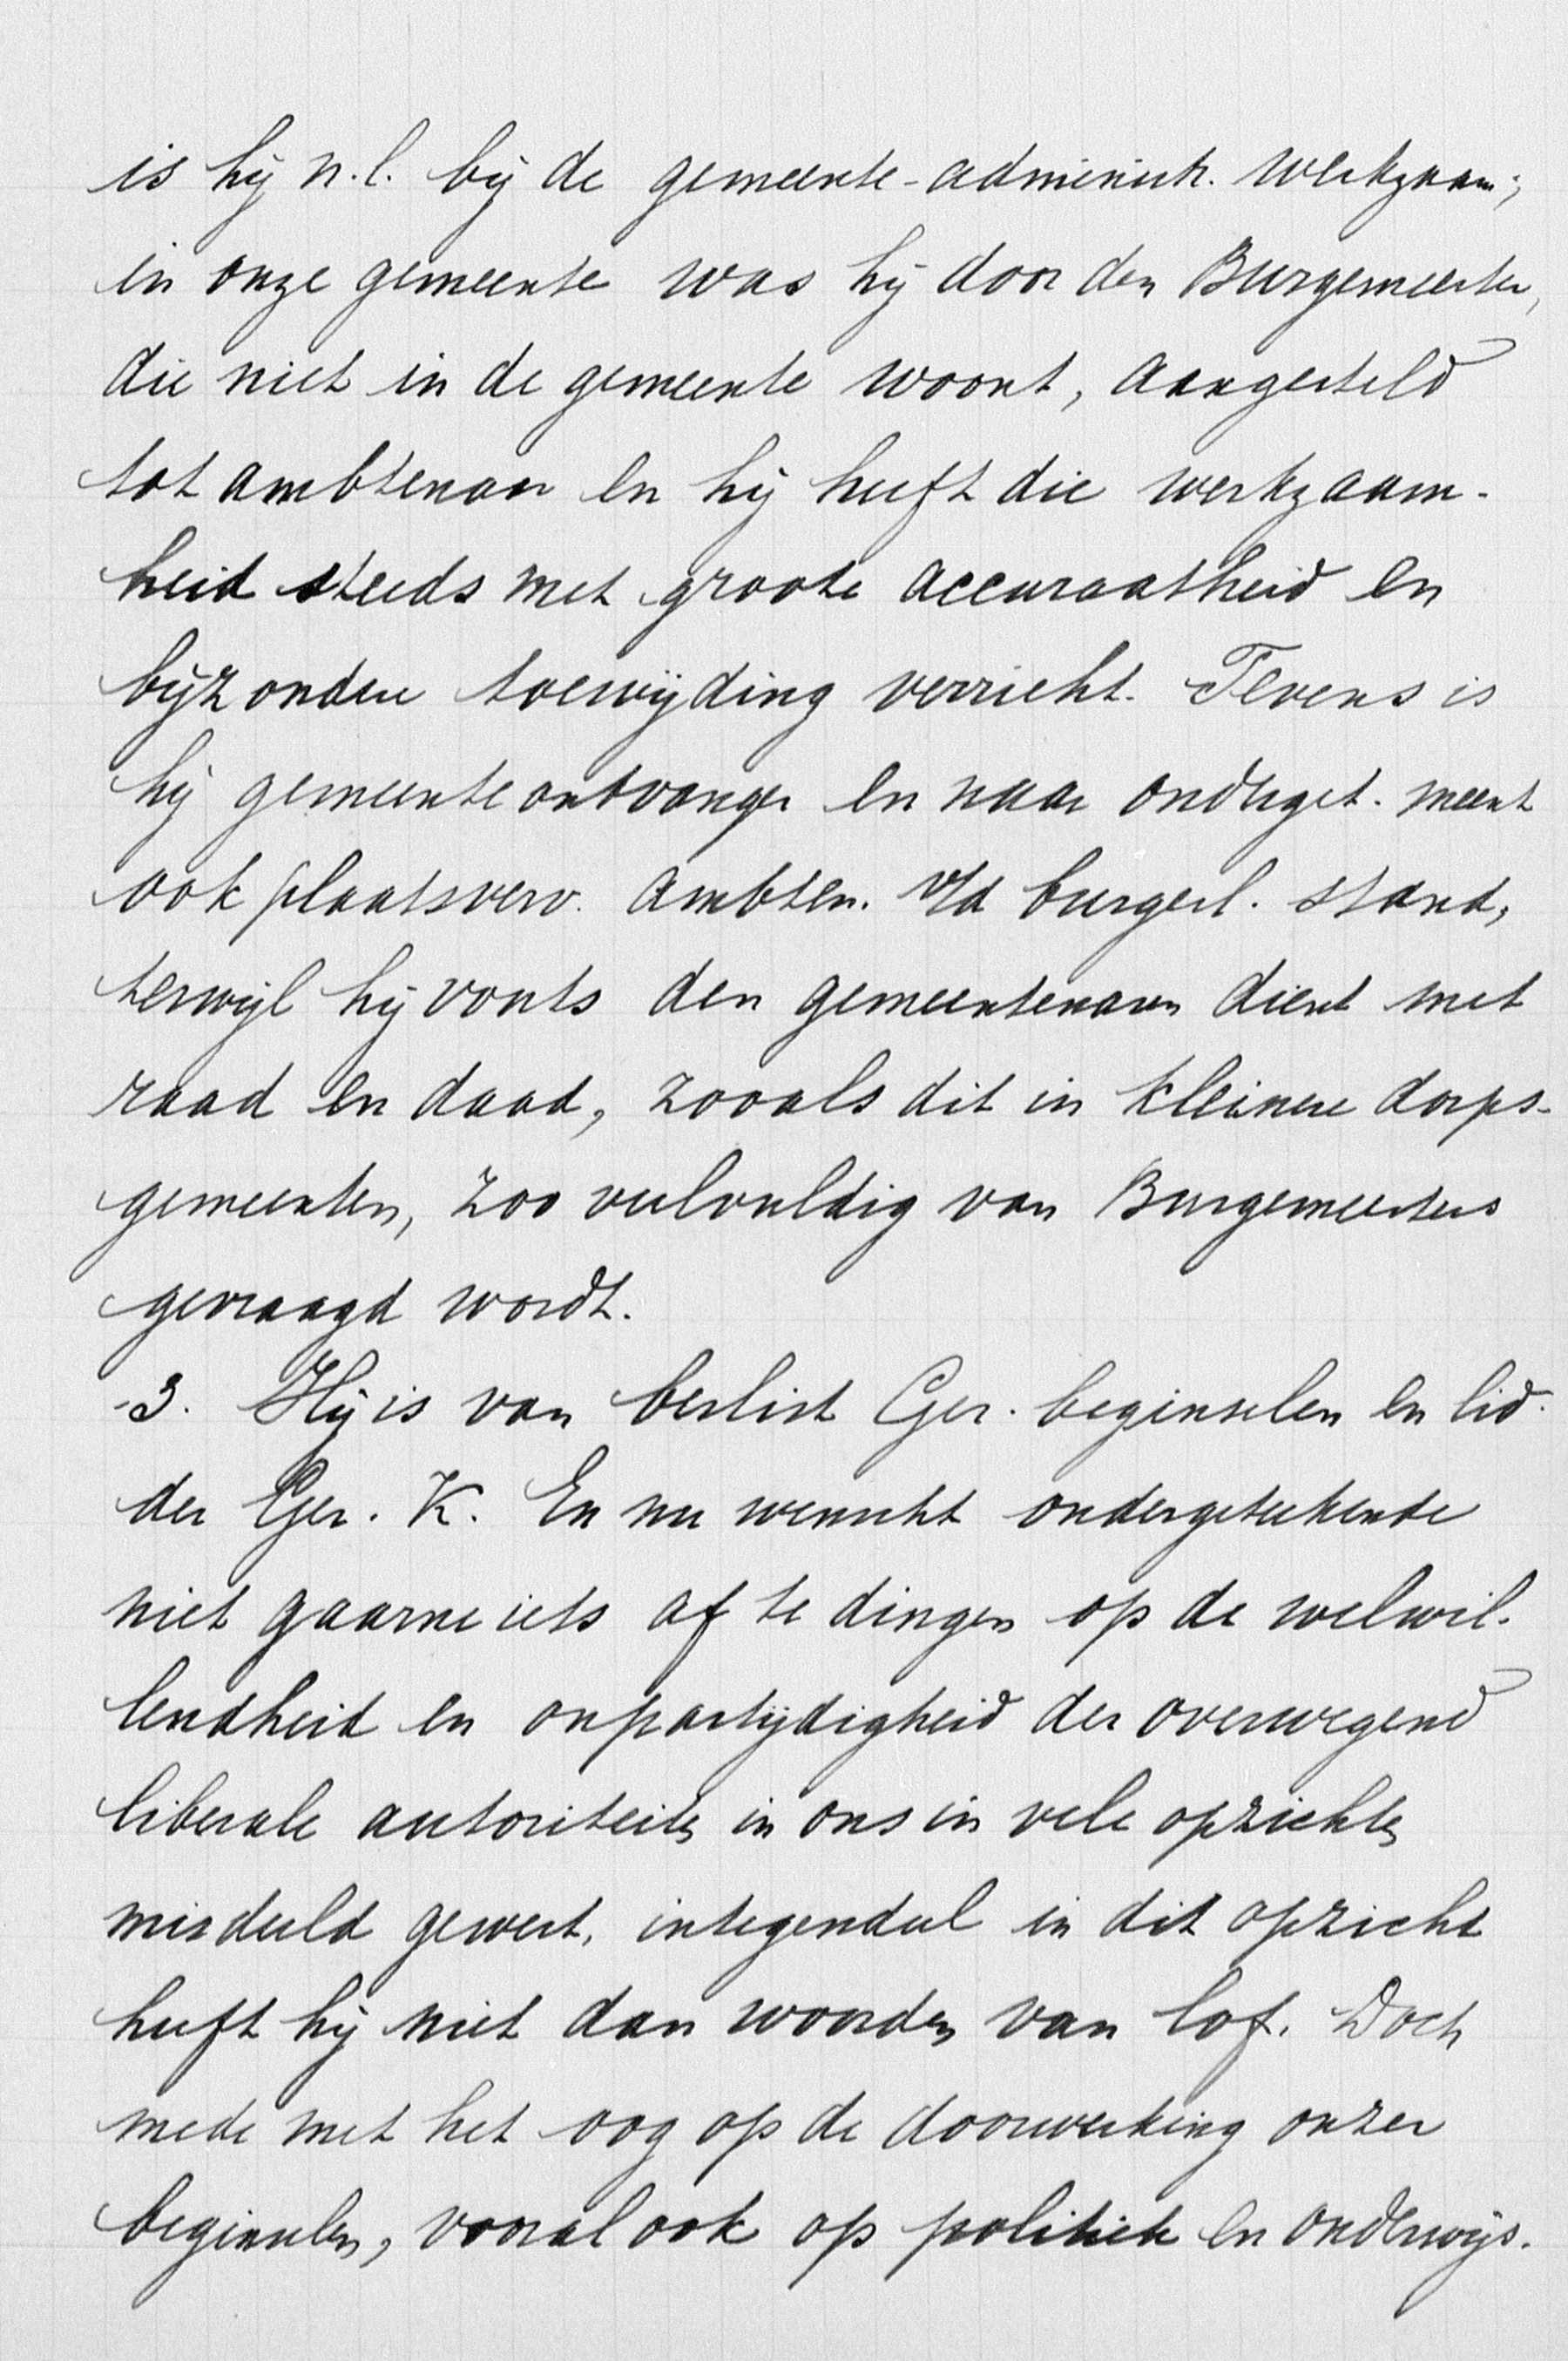 is hij n.l. bij de gemeente-administr. werkzaam;
in onze gemeente was hij door den Burgemeester,
die niet in de gemeente woont, aangesteld
tot ambtenaar en hij heeft die werkzaam-
heid steeds met groote accuraatheid en
bijzondere toewijding verricht. Tevens is
hij gemeenteontvanger en naar onderget. meent
ook plaatsverv. ambten. v/d burgerl. stand,
terwijl hij voorts den gemeentenaren dient met
raad en daad, zooals dit in kleinere dorps-
gemeenten, zoo veelvuldig van Burgemeesters
gevraagd wordt.
3. Hij is van beslist Ger. beginselen en lid
der Ger. K. En nu wenscht ondergeteekende
niet gaarne iets af te dingen op de welwil-
lendheid en onpartijdigheid der overwegend
liberale autoriteiten in ons in vele opzichten
misdeeld gewest, integendeel in dit opzicht
heeft hij niet dan woorden van lof. Doch
mede met het oog op de doorwerking onzer
beginselen, vooral ook op politiek en onderwijs-